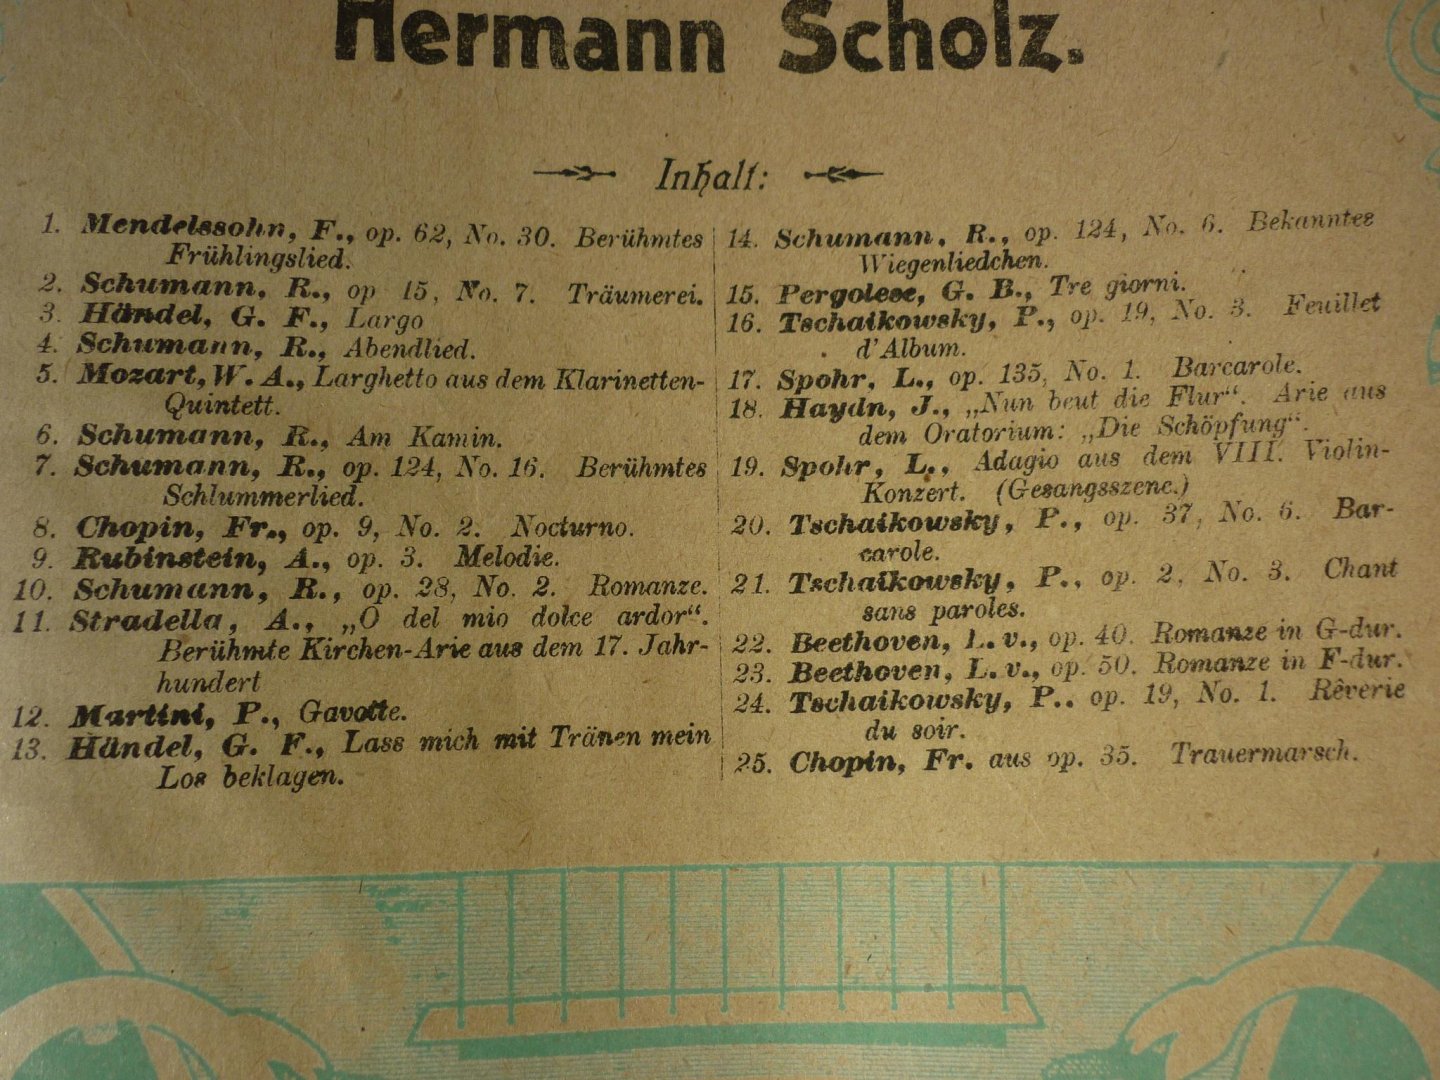 Hermann Scholz.
Inhalt:
1. Mendelssohn, F., op. 62, No. 30. Berühmtes
Frühlingslied.
2. Schumann, R., op 15, No. 7. Träumerei.
3. Händel, G. F., Largo
4. Schumann, R., Abendlied.
5. Mozart, W. A., Larghetto aus dem Klarinetten-
Quintett.
6. Schumann, R., Am Kamin.
7. Schumann, R., op. 124, No. 16. Berühmtes
Schlummerlied.
8. Chopin, Fr., op. 9, No. 2. Nocturno.
9. Rubinstein, A., op. 3. Melodie.
10. Schumann, R., op. 28, No. 2. Romanze.
11. Stradella, A., „O del mio dolce ardor“.
Berühmte Kirchen-Arie aus dem 17. Jahr-
hundert
12. Martini, P., Gavotte.
13. Händel, G. F., Lass mich mit Tränen mein
Los beklagen.
14. Schumann, R., op. 124, No. 6. Bekanntes
Wiegenliedchen.
15. Pergolese, G. B., Tre giorni.
16. Tschaikowsky, P., op. 19, No. 3. Feuillet
d'Album.
17. Spohr, L., op. 135, No. 1. Barcarole.
18. Haydn, J., „Nun beut die Flur“. Arie aus
dem Oratorium: „Die Schöpfung“.
19. Spohr, L., Adagio aus dem VIII. Violin-
Konzert. (Gesangsszene.)
20. Tschaikowsky, P., op. 37, No. 6. Bar-
carole.
21. Tschaikowsky, P., op. 2, No. 3. Chant
sans paroles.
22. Beethoven, L. v., op. 40. Romanze in G-dur.
23. Beethoven, L. v., op. 50. Romanze in F-dur.
24. Tschaikowsky, P.. op. 19, No. 1. Rêverie
du soir.
25. Chopin, Fr. aus op. 35. Trauermarsch.